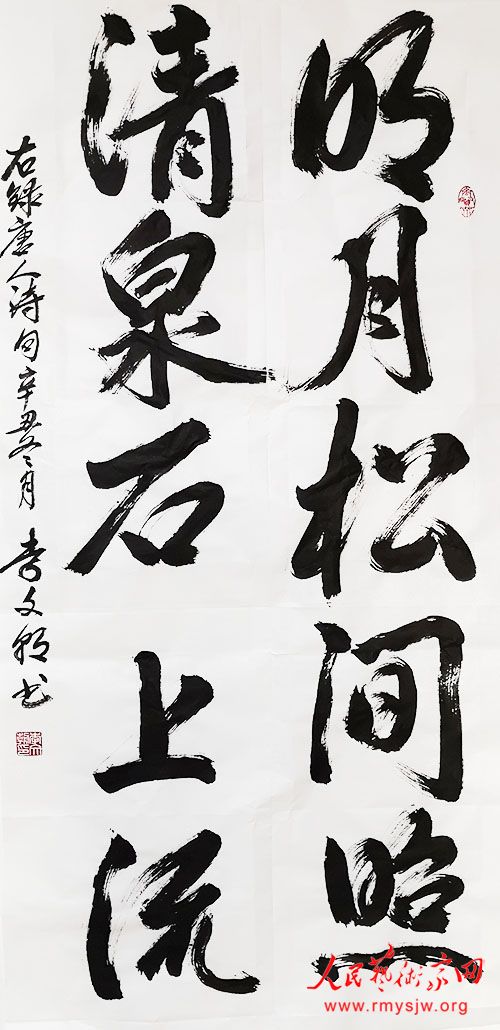 明月松间照
清泉石上流
右録唐人诗句辛丑冬月 李文朝书
人民艺术家网
www.rmysjw.org